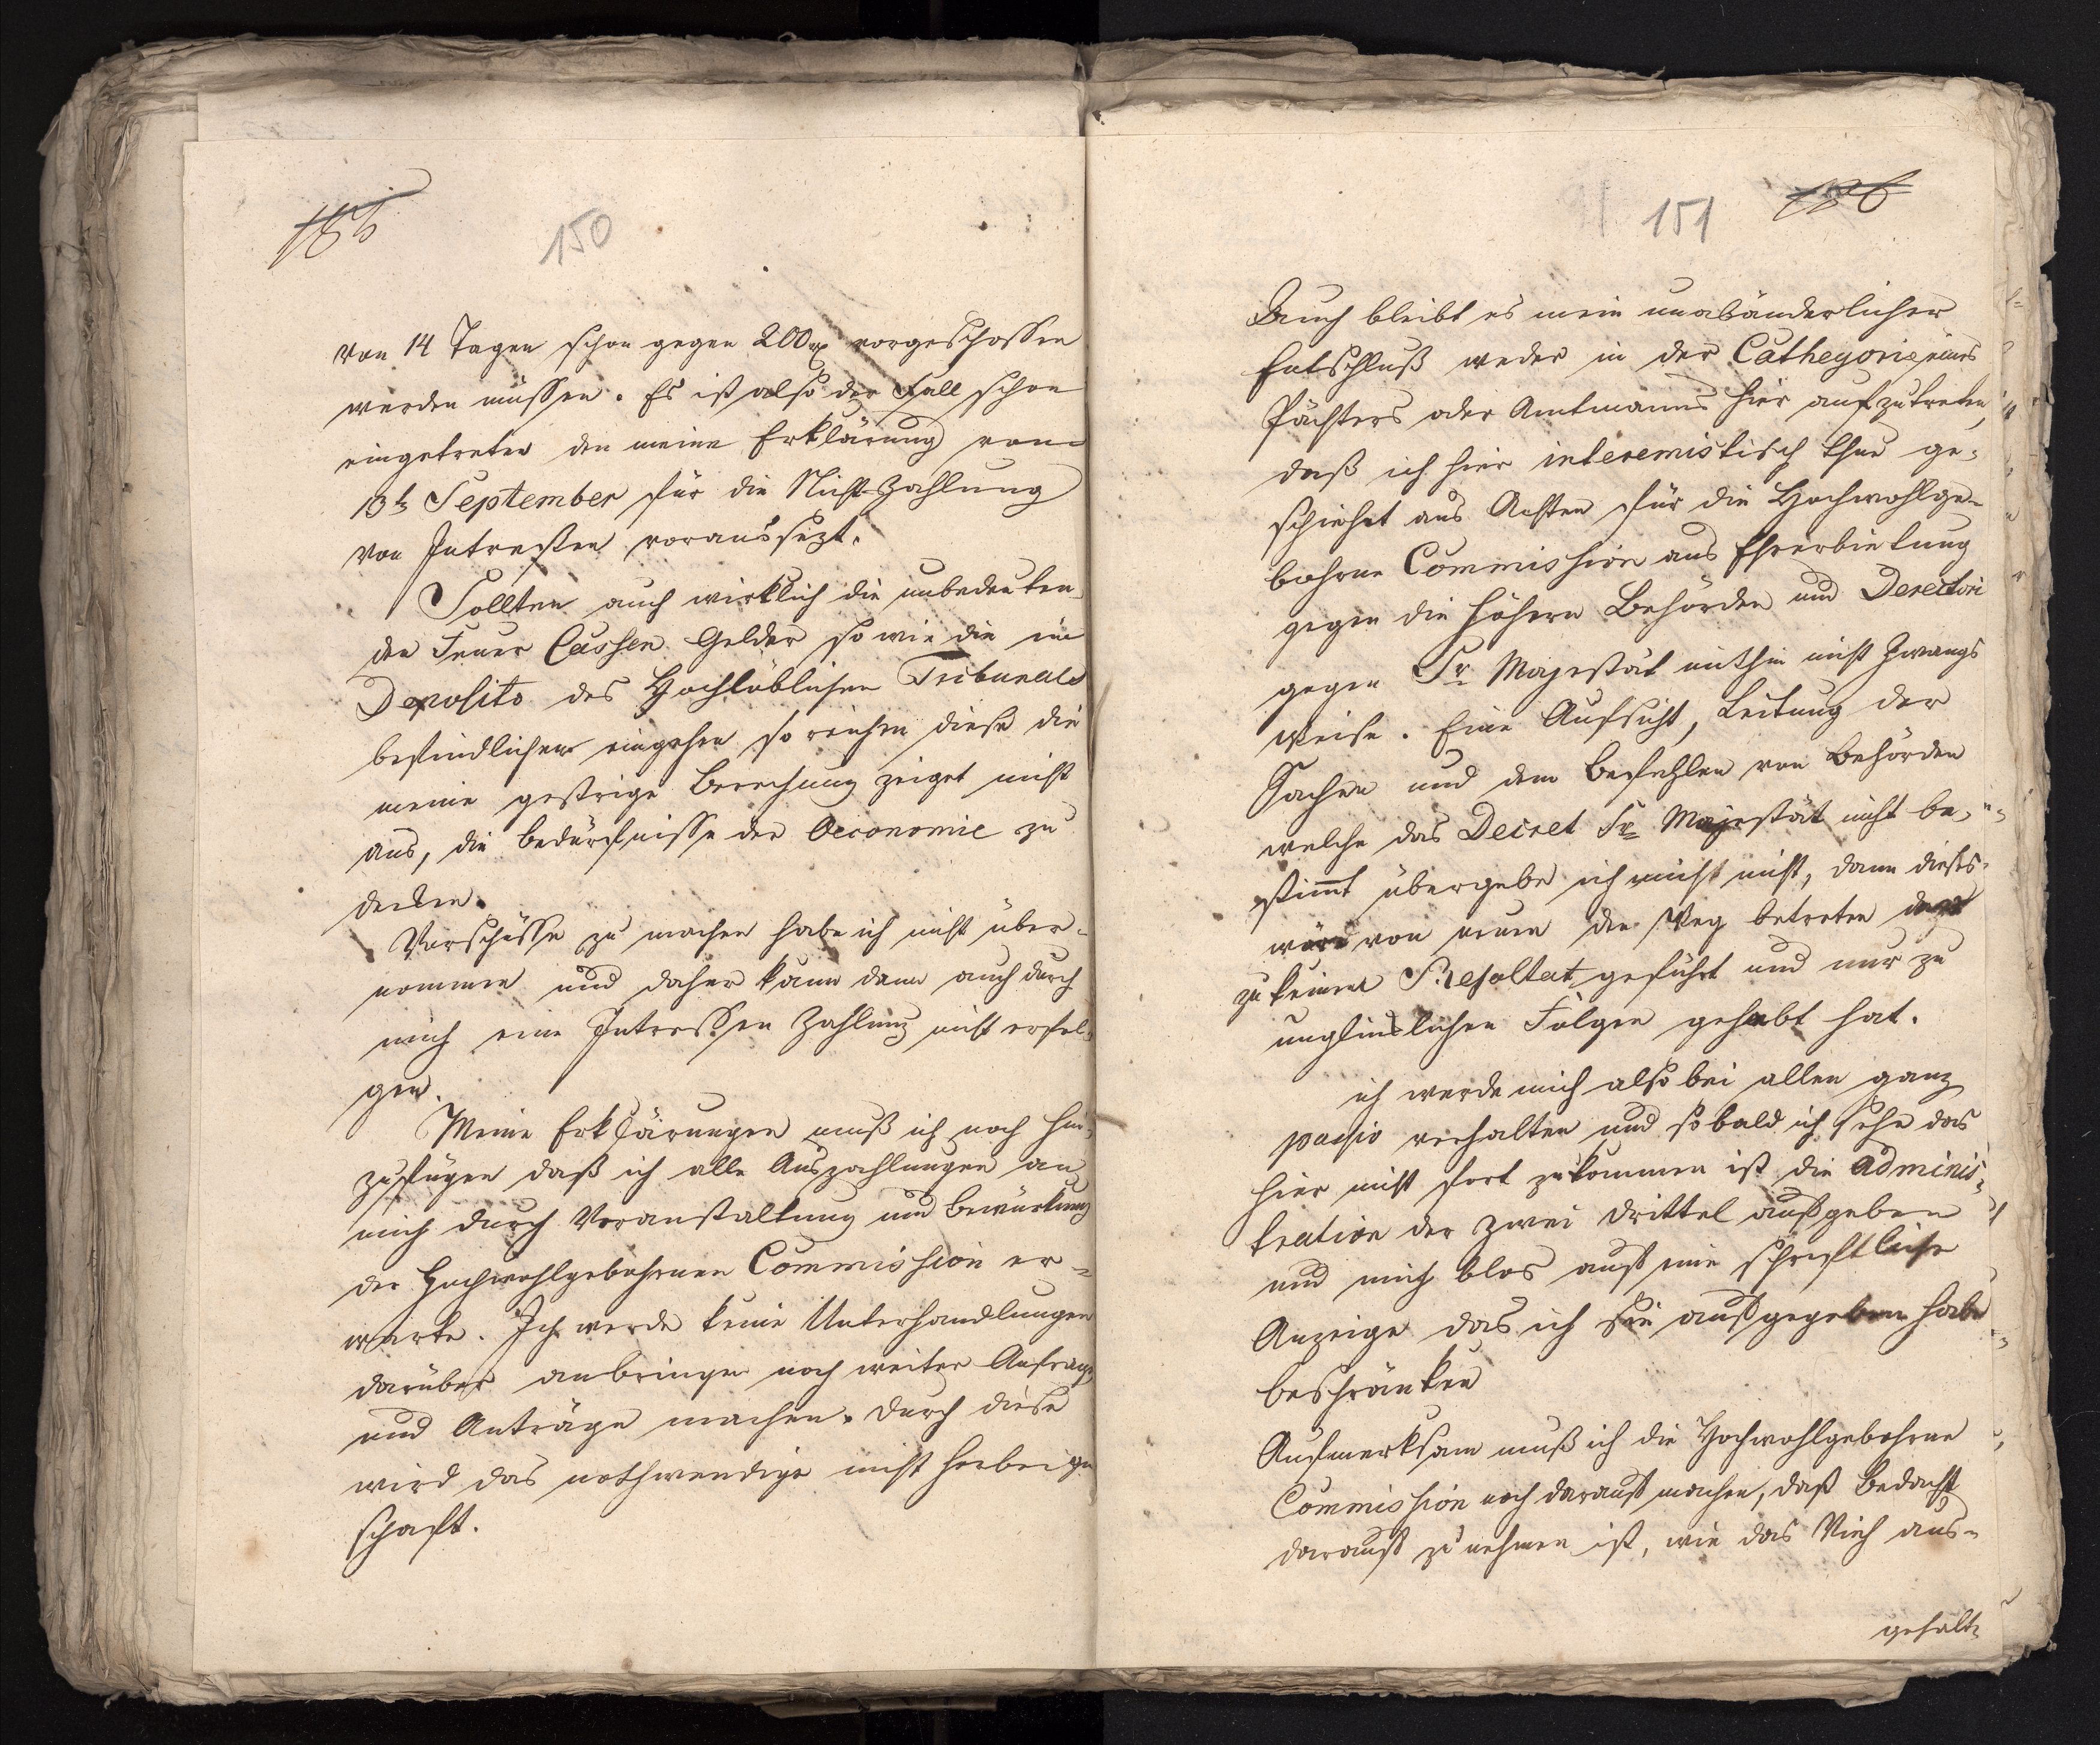 150
von 14 Tagen schon gegen 200 rh vorgeschossen
werden müssen. Es ist also der Fall schon
eingetreten den meine Erklärung vom
13t September für die Nicht-Zahlung
von Intressen voraussezt.
Sollten auch wirklich die unbedeuten
den Feuer Cassen Gelder so wie die im
Deposito des Hochlöblichen Tribunals
befindlichen eingehen so reichen diese die
meine gestrige Berechung zeiget nicht
aus, die Bedürfnisse der Oeconomie zu
decken.
Vorschüsse zu machen habe ich nicht über-
nommen und daher kann denn auch durch
mich eine Intressen Zahlung nicht erfol-
gen.
Meine Erklärungen muß ich noch hin-
zufügen daß ich alle Auszahlungen an
mich durch Veranstaltung und Bewürkung
der Hochwohlgebohrnen Commission er-
warte. Ich werde keine Unterhandlungen
darüber anbringen noch weiter Anfrage
und Anträge machen. Durch diese
wird das nothwendige nicht herbei ge
schaft.
151
Auch bleibt es mein unabänderlicher
Entschluß weder in der Cathegorie eines
Pächters oder Amtmanns hier aufzutreten,
daß ich hier interemistisch thue ge-
schiehet aus Achten für die Hochwohlge-
bohrne Commission aus Ehrerbietung
gegen die höhern Behörden und
gegen Sr Majestät mithin nicht Zwangs
weise. Eine Aufsicht, Leitung der
Sachen und dem Befehlen von Behörden
welche das Decret Sr Majestät nicht be-
stimt übergebe ich micht nicht, dann dieses
wäre von neuen den Weg betreten der
zu keinem Resultat geführt und nur zu
unglücklichen Folgen gehabt hat.
ich werde mich also bei allen ganz
passiv verhalten und so bald ich sehe das
hier nicht fort zukommen ist die Adminis-
tration der zwei Drittel aufgeben
und mich blos auf eine schriftliche
Anzeige das ich sie aufgegeben habe
beschränken
Aufmerksam muß ich die Hochwohlgebohrne
Commission noch darauf machen, daß Bedacht
darauf zu nehmen ist, wie das Vieh aus-
gehalt-